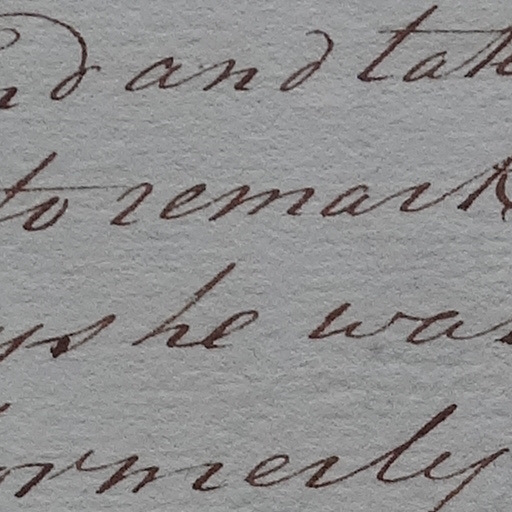 and tak
to remark
he was
formerly